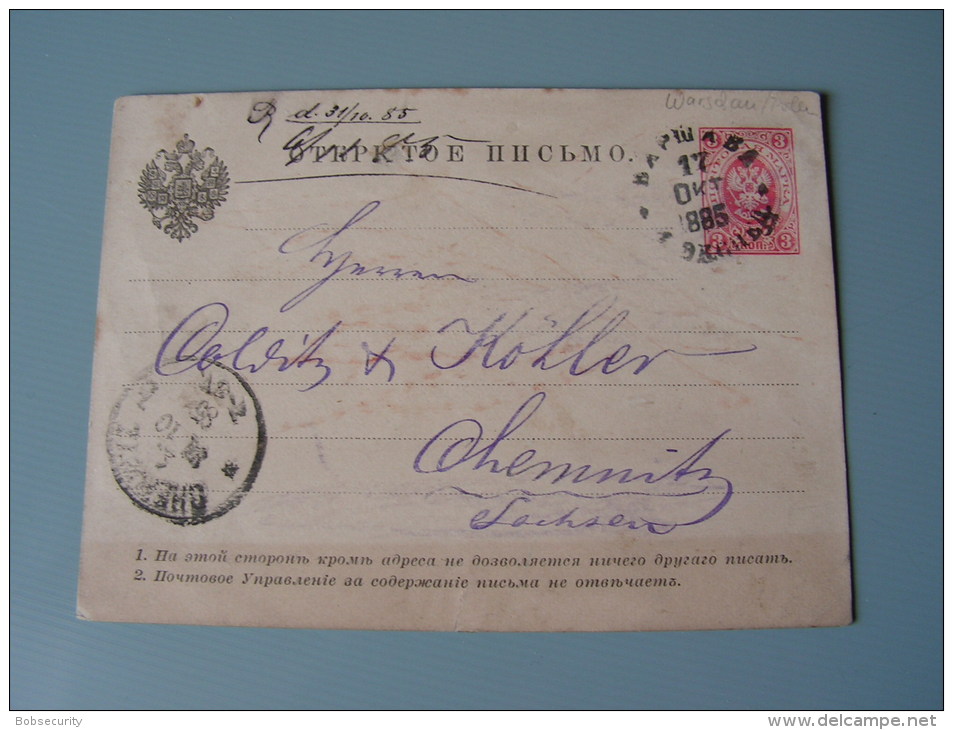 Warschau/Polen
R d. 31/10. 85
ОТКРЫТОЕ ПИСЬМО.
ВАРШАВА
17
ОКТ
1885
3 3
МАРКА
3 3
Herren
Colditz & Köhler
Chemnitz
Sachsen
CHEMNITZ
1. На этой сторонѣ кромѣ адреса не дозволяется ничего другаго писать.
2. Почтовое Управленіе за содержаніе письма не отвѣчаетъ.
Bobsecurity
www.delcampe.net